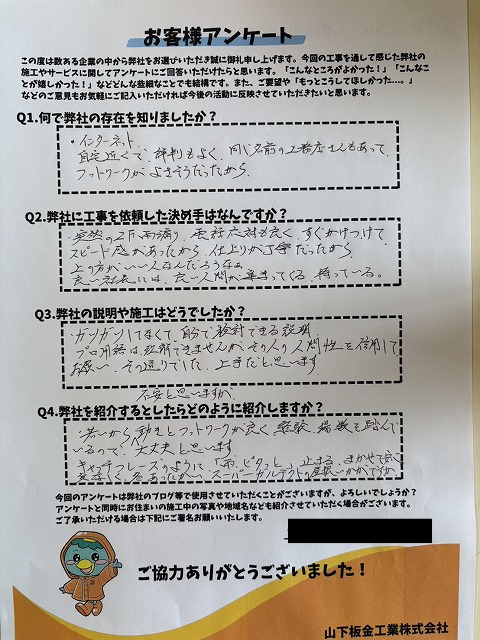 お客様アンケート
この度は数ある企業の中から弊社をお選びいただき誠に御礼申し上げます。今回の工事を通して感じた弊社の
施工やサービスに関してアンケートにご回答いただけたらと思います。「こんなところがよかった！」「こんなこ
とが嬉しかった！」などどんな些細なことでも結構です。また、ご要望や「もっとこうしてほしかった…。」
などのご意見もお気軽にご記入いただければ今後の活動に反映させていただきたいと思います。
Q1.何で弊社の存在を知りましたか？
・インターネット
自宅近くで、評判もよく、同じ名前の工務店さんもあって、
フットワークがよさそうだったから。
Q2.弊社に工事を依頼した決め手はなんですか？
・突然の2F雨漏り、電話応対も良く、すぐかけつけて、
スピード感があったから、仕上りが丁寧だったから。
上の方がいい人なんだろうなぁ
良い社長には、良い人間が集まってくる。持っている。
Q3.弊社の説明や施工はどうでしたか？
・ガツガツしてなくて、自分で検討できる説明。
プロ用語は理解できませんが、その人の人間性を信用して
お願い、その通りでした、上手だと思います
不安と思いますが、
Q4.弊社を紹介するとしたらどのように紹介しますか？
・若いから、動きとフットワークが良く、経験、場数を踏んで
いるので、大丈夫と思います
キャッチフレーズのように「雨、ピタッと、止まる、まかせて安心
スーパーガルテクトの屋根いかがですか。
今回のアンケートは弊社のブログ等で使用させていただくことがございますが、よろしいでしょうか？
アンケートと同時にお住まいの施工中の写真や地域名なども紹介させていただく場合がございます。
ご了承いただける場合は下記にご署名お願いいたします。
ご協力ありがとうございました！
山下板金工業株式会社